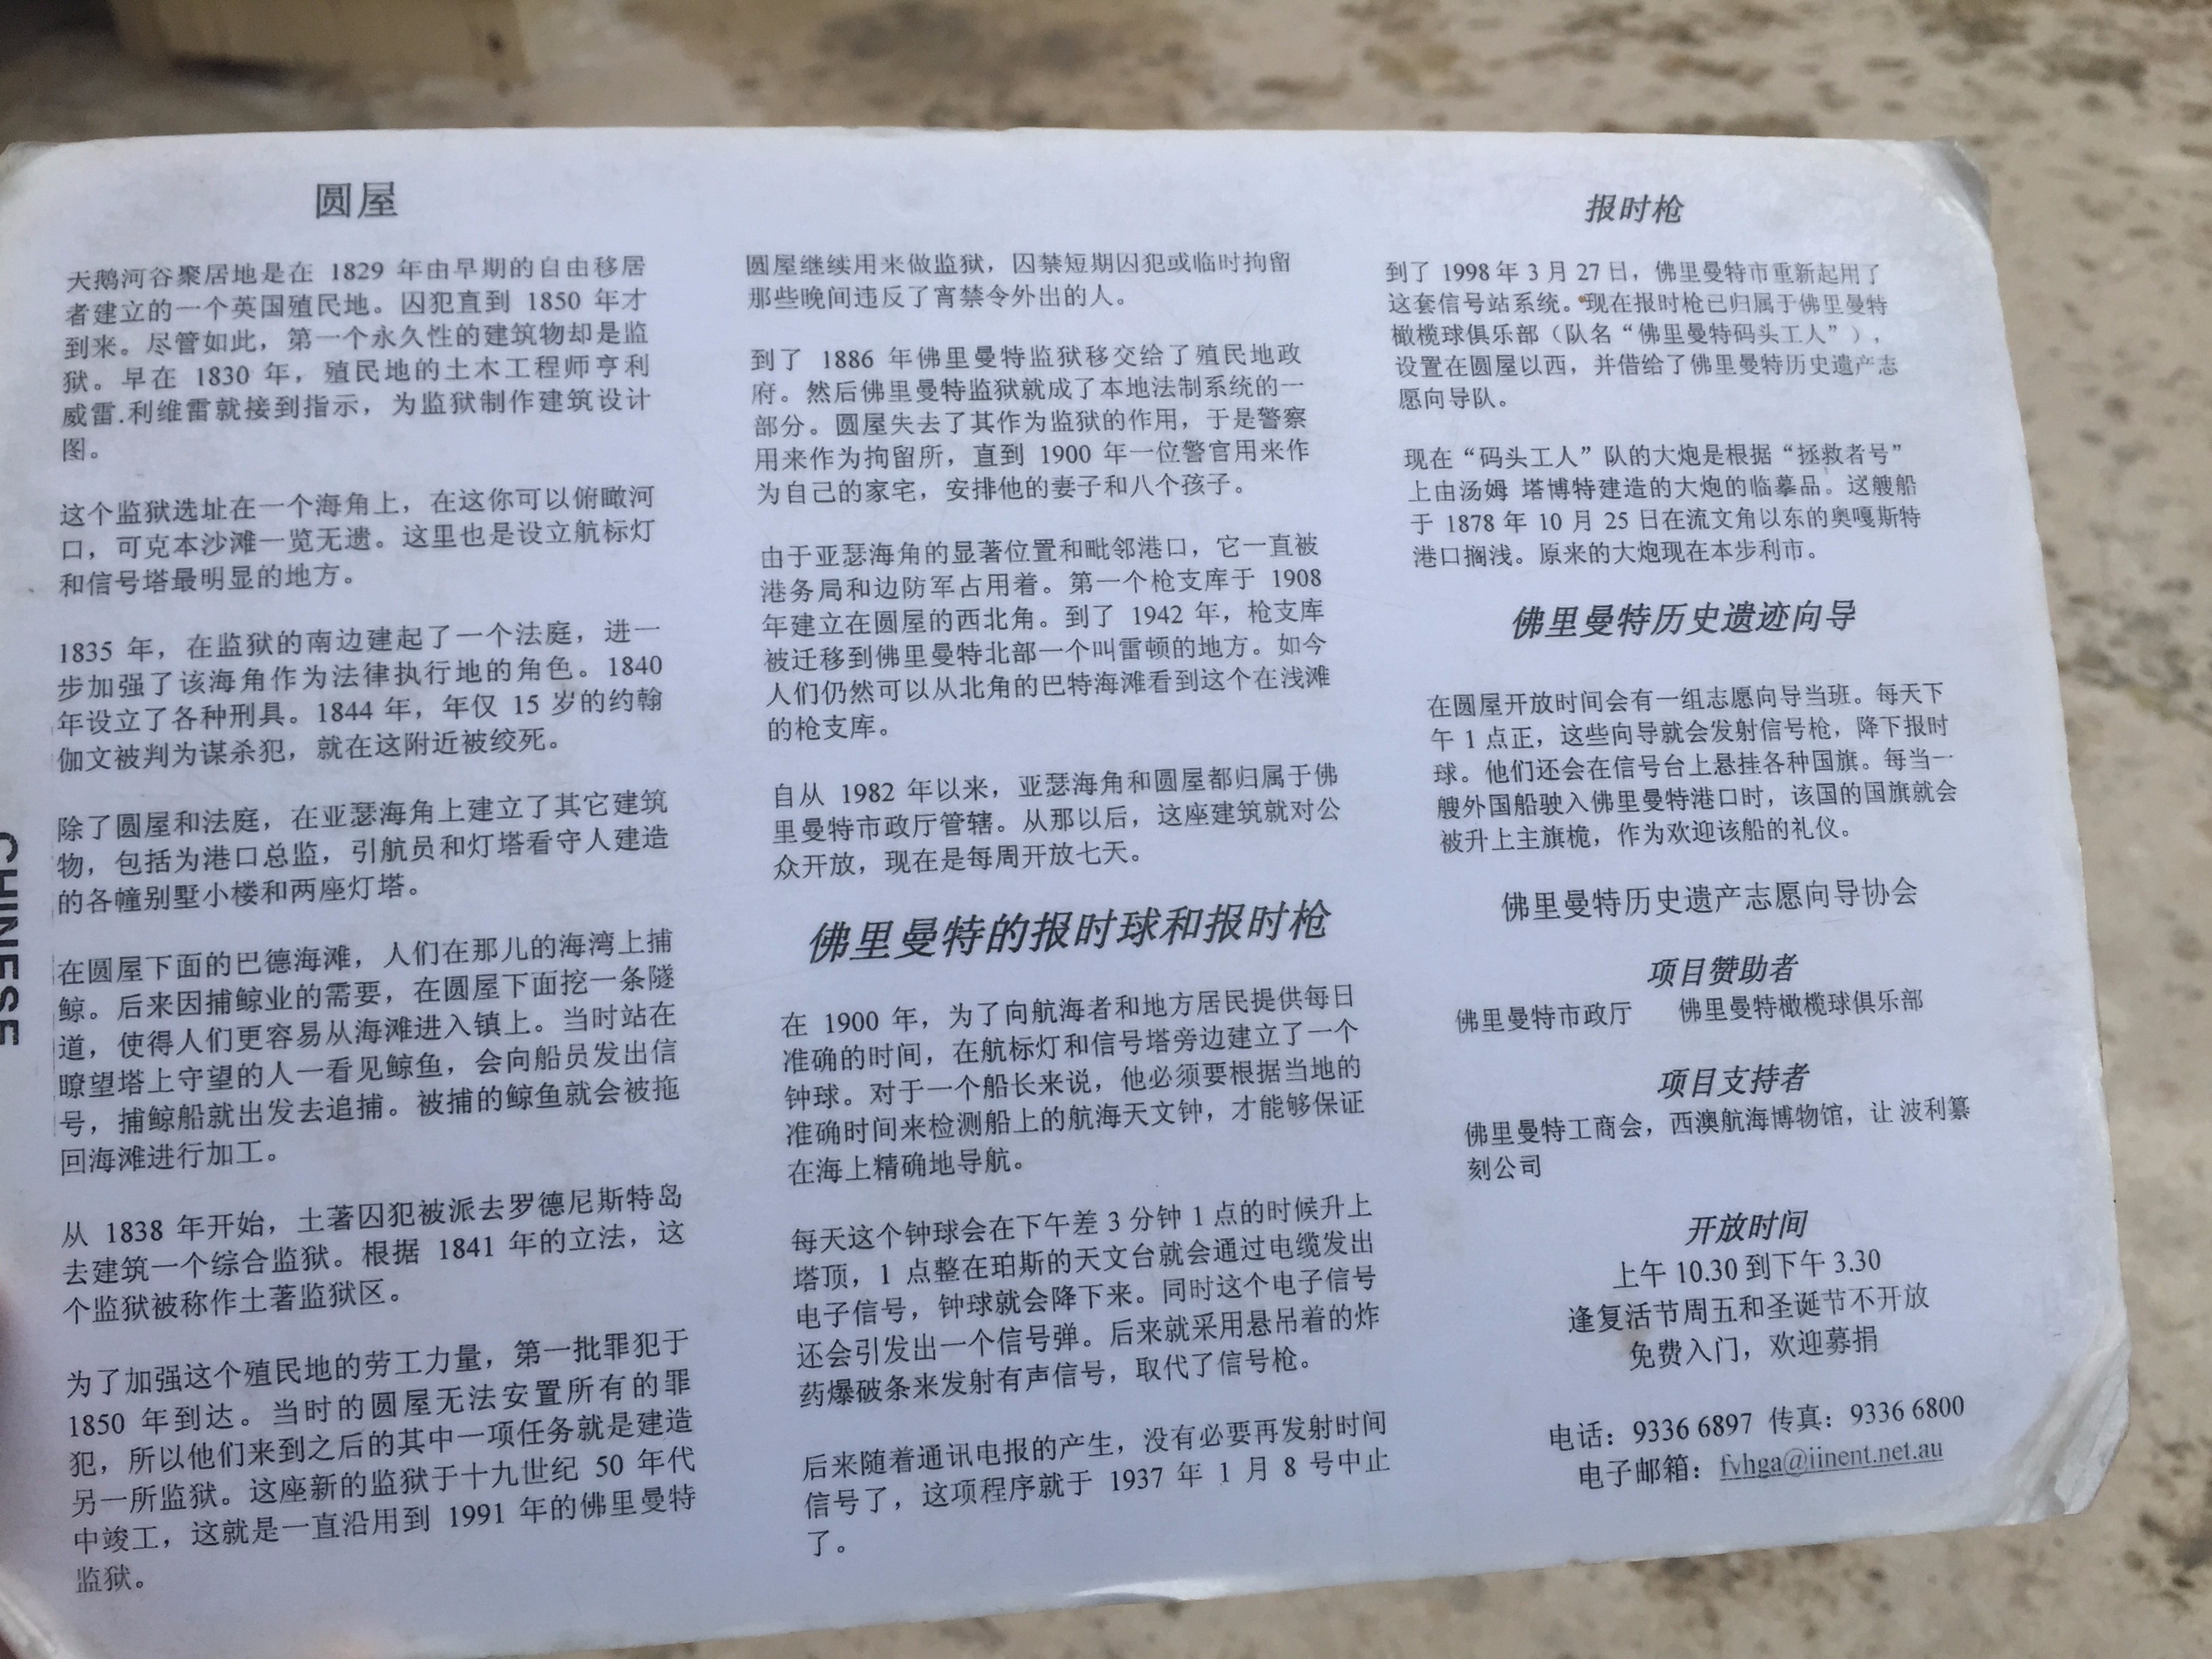 圆屋
天鹅河谷聚居地是在 1829 年由早期的自由移居
者建立的一个英国殖民地。囚犯直到 1850 年才
到来。尽管如此，第一个永久性的建筑物却是监
狱。早在 1830 年，殖民地的土木工程师亨利
威雷.利维雷就接到指示，为监狱制作建筑设计
图。
这个监狱选址在一个海角上，在这你可以俯瞰河
口，可克本沙滩一览无遗。这里也是设立航标灯
和信号塔最明显的地方。
1835 年，在监狱的南边建起了一个法庭，进一
步加强了该海角作为法律执行地的角色。1840
年设立了各种刑具。1844 年，年仅 15 岁的约翰
伽文被判为谋杀犯，就在这附近被绞死。
除了圆屋和法庭，在亚瑟海角上建立了其它建筑
物，包括为港口总监，引航员和灯塔看守人建造
的各幢别墅小楼和两座灯塔。
在圆屋下面的巴德海滩，人们在那儿的海湾上捕
鲸。后来因捕鲸业的需要，在圆屋下面挖一条隧
道，使得人们更容易从海滩进入镇上。当时站在
瞭望塔上守望的人一看见鲸鱼，会向船员发出信
号，捕鲸船就出发去追捕。被捕的鲸鱼就会被拖
回海滩进行加工。
从 1838 年开始，土著囚犯被派去罗德尼斯特岛
去建筑一个综合监狱。根据 1841 年的立法，这
个监狱被称作土著监狱区。
为了加强这个殖民地的劳工力量，第一批罪犯于
1850 年到达。当时的圆屋无法安置所有的罪
犯，所以他们来到之后的其中一项任务就是建造
另一所监狱。这座新的监狱于十九世纪 50 年代
中竣工，这就是一直沿用到 1991 年的佛里曼特
监狱。
圆屋继续用来做监狱，囚禁短期囚犯或临时拘留
那些晚间违反了宵禁令外出的人。
到了 1886 年佛里曼特监狱移交给了殖民地政
府。然后佛里曼特监狱就成了本地法制系统的一
部分。圆屋失去了其作为监狱的作用，于是警察
用来作为拘留所，直到 1900 年一位警官用来作
为自己的家宅，安排他的妻子和八个孩子。
由于亚瑟海角的显著位置和毗邻港口，它一直被
港务局和边防军占用着。第一个枪支库于 1908
年建立在圆屋的西北角。到了 1942 年，枪支库
被迁移到佛里曼特北部一个叫雷顿的地方。如今
人们仍然可以从北角的巴特海滩看到这个在浅滩
的枪支库。
自从 1982 年以来，亚瑟海角和圆屋都归属于佛
里曼特市政厅管辖。从那以后，这座建筑就对公
众开放，现在是每周开放七天。
佛里曼特的报时球和报时枪
在 1900 年，为了向航海者和地方居民提供每日
准确的时间，在航标灯和信号塔旁边建立了一个
钟球。对于一个船长来说，他必须要根据当地的
准确时间来检测船上的航海天文钟，才能够保证
在海上精确地导航。
每天这个钟球会在下午差 3 分钟 1 点的时候升上
塔顶，1 点整在珀斯的天文台就会通过电缆发出
电子信号，钟球就会降下来。同时这个电子信号
还会引发出一个信号弹。后来就采用悬吊着的炸
药爆破条来发射有声信号，取代了信号枪。
后来随着通讯电报的产生，没有必要再发射时间
信号了，这项程序就于 1937 年 1 月 8 号中止
了。
报时枪
到了 1998 年 3 月 27 日，佛里曼特市重新起用了
这套信号站系统。现在报时枪已归属于佛里曼特
橄榄球俱乐部（队名“佛里曼特码头工人”），
设置在圆屋以西，并借给了佛里曼特历史遗产志
愿向导队。
现在“码头工人”队的大炮是根据“拯救者号”
上由汤姆 塔博特建造的大炮的临摹品。这艘船
于 1878 年 10 月 25 日在流文角以东的奥嘎斯特
港口搁浅。原来的大炮现在本步利市。
佛里曼特历史遗迹向导
在圆屋开放时间会有一组志愿向导当班。每天下
午 1 点正，这些向导就会发射信号枪，降下报时
球。他们还会在信号台上悬挂各种国旗。每当一
艘外国船驶入佛里曼特港口时，该国的国旗就会
被升上主旗桅，作为欢迎该船的礼仪。
佛里曼特历史遗产志愿向导协会
项目赞助者
佛里曼特市政厅 佛里曼特橄榄球俱乐部
项目支持者
佛里曼特工商会，西澳航海博物馆，让 波利纂
刻公司
开放时间
上午 10.30 到下午 3.30
逢复活节周五和圣诞节不开放
免费入门，欢迎募捐
电话：9336 6897 传真：9336 6800
电子邮箱：fvhga@iinent.net.au
CHINESE